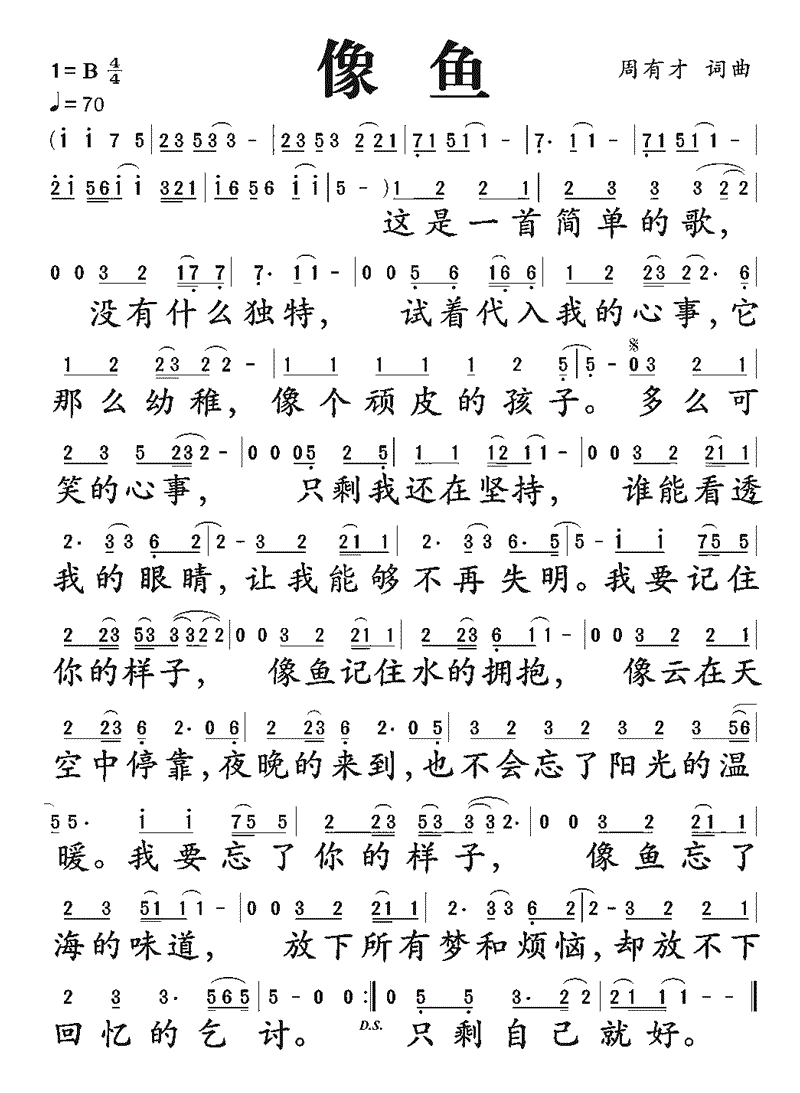 像 鱼
1= B 4/4
周有才 词曲
♩= 70
(i i 7 5 | 2 3 5 3 3 - | 2 3 5 3 2 2 1 | 7 1 5 1 1 - | 7· 1 1 - | 7 1 5 1 1 - |
2 i 5 6 i i 3 2 1 | i 6 5 6 i i | 5 - ) 1 2 2 1 | 2 3 3 3 2 2 |
这是一首简单的歌，
0 0 3 2 1 7 7 | 7· 1 1 - | 0 0 5 6 1 6 6 | 1 2 2 3 2 2· 6 |
没有什么独特， 试着代入我的心事，它
1 2 2 3 2 2 - | 1 1 1 1 1 2 5 | 5 - 0 3 2 1 |
那么幼稚，像个顽皮的孩子。多么可
2 3 5 2 3 2 - | 0 0 0 5 2 5 | 1 1 1 2 1 1 - | 0 0 3 2 2 1 1 |
笑的心事， 只剩我还在坚持， 谁能看透
2· 3 3 6 2 | 2 - 3 2 2 1 1 | 2· 3 3 6· 5 | 5 - i i 7 5 5 |
我的眼睛，让我能够不再失明。我要记住
2 2 3 5 3 3 3 2 2 | 0 0 3 2 2 1 1 | 2 2 3 6 1 1 - | 0 0 3 2 2 1 |
你的样子， 像鱼记住水的拥抱， 像云在天
2 2 3 6 2· 0 6 | 2 2 3 6 2· 0 5 | 3 2 3 2 3 2 3 5 6 |
空中停靠，夜晚的来到，也不会忘了阳光的温
5 5· i i 7 5 5 | 2 2 3 5 3 3 3 2· | 0 0 3 2 2 1 1 |
暖。我要忘了你的样子， 像鱼忘了
2 3 5 1 1 1 - | 0 0 3 2 2 1 1 | 2· 3 3 6 2 | 2 - 3 2 2 1 |
海的味道， 放下所有梦和烦恼，却放不下
2 3 3· 5 6 5 | 5 - 0 0 :‖ 0 5 5 3· 2 2 | 2 1 1 1 - - ‖
回忆的乞讨。 D.S. 只剩自己就好。